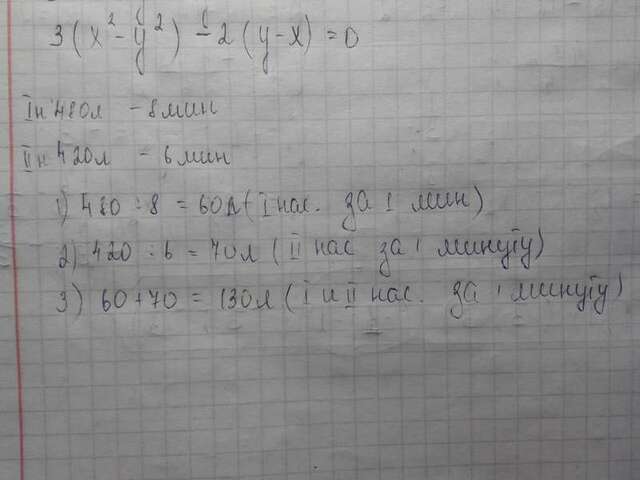 3(x² - y²) - 2(y-x) = 0
I н 480л - 8 мин
II н 420л - 6 мин
1) 480 : 8 = 60л (I нас. за 1 мин)
2) 420 : 6 = 70л (II нас за 1 минуту)
3) 60 + 70 = 130л (I и II нас. за 1 минуту)